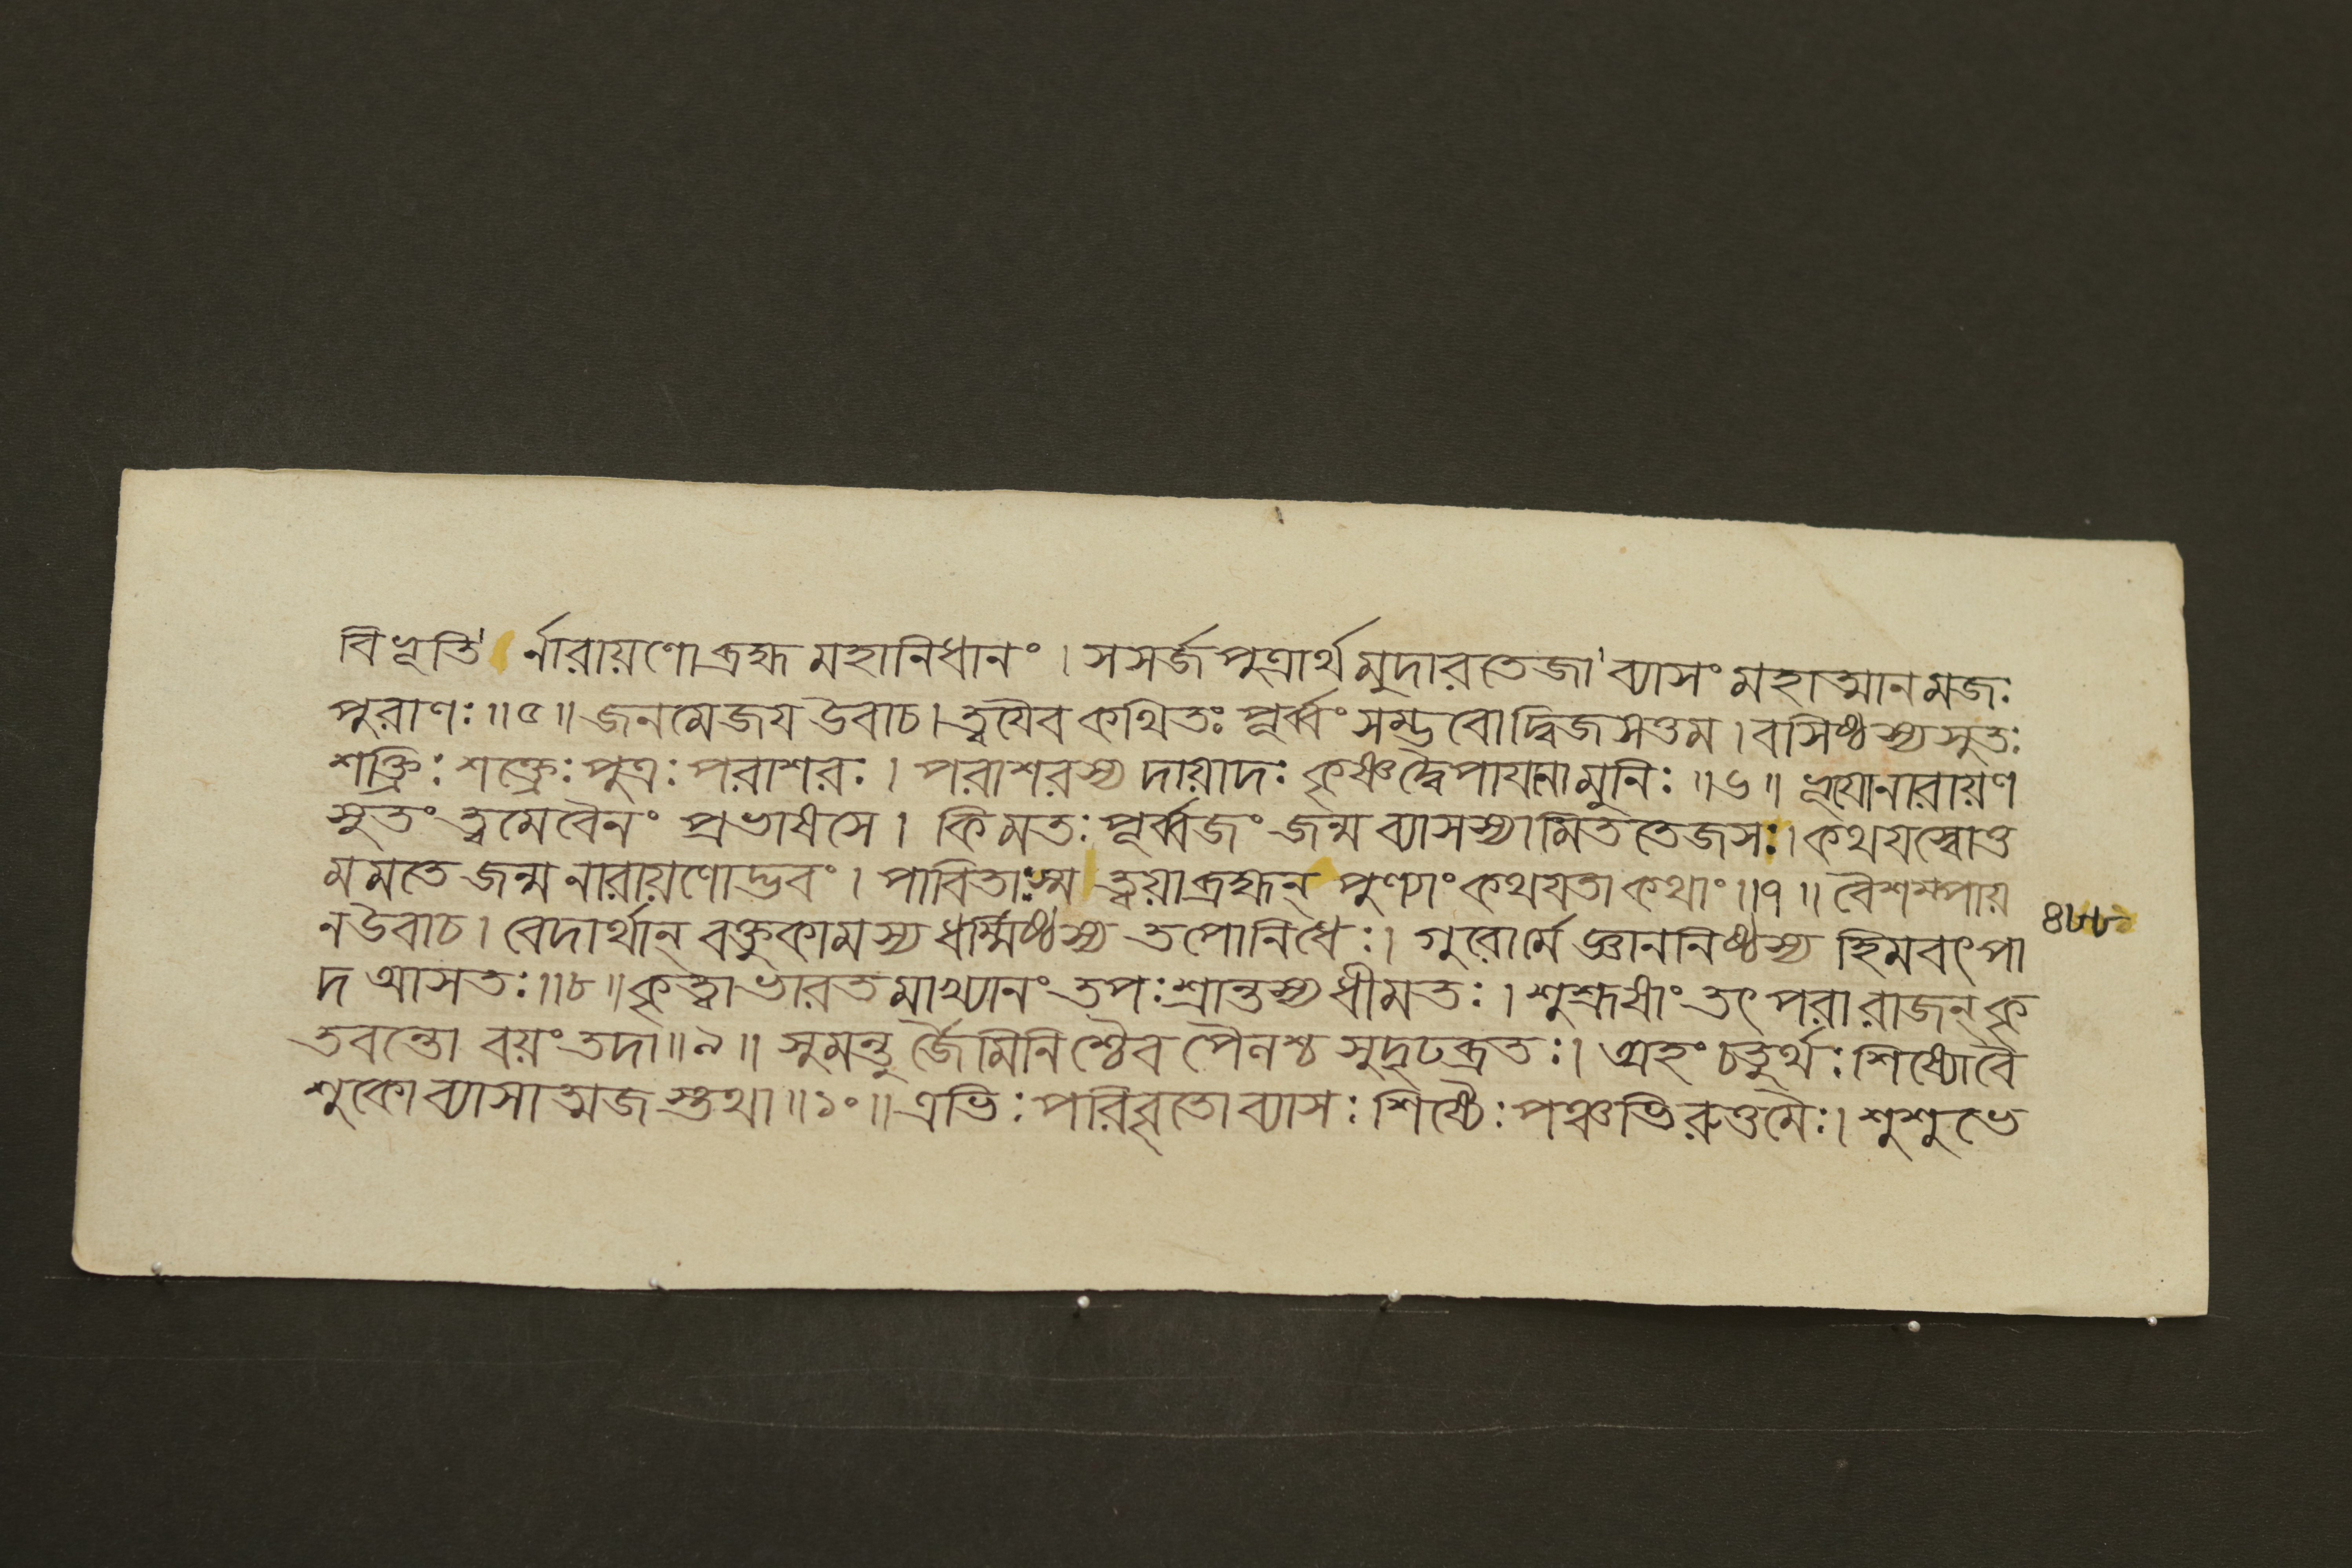 বিভূতি' র্নারায়ণো ব্রহ্ম মহানিধানং । সসর্জ পুত্রার্থমুদারতেজা' ব্যাসং মহাত্মানমজঃ
পুরাণঃ ॥ ৫ ॥ জনমেজয উবাচ । ত্বযৈব কথিতঃ পূর্ব্বং সম্ভবো দ্বিজসত্তম । বসিষ্ঠস্য সুতঃ
শক্ত্রিঃ শক্ত্রেঃ পুত্রঃ পরাশরঃ । পরাশরস্য দায়াদঃ কৃষ্ণদ্বৈপাযনো মুনিঃ ॥ ৬ ॥ ভূযো নারায়ণ
সুতং ত্বমেবৈনং প্রভাষসে । কিমতঃ পূর্ব্বজং জন্ম ব্যাসস্যামিততেজসঃ । কথযস্বোত্ত
মমতে জন্ম নারায়ণোদ্ভবং । পাবিতাঃ স্ম ত্বয়া ব্রহ্মন্ পুণ্যাং কথযতা কথাং ॥ ৭ ॥ বৈশম্পায়
ন উবাচ । বেদার্থান্ বক্তুকামস্য ধর্ম্মিষ্ঠস্য তপোনিধেঃ । গুরোর্মে জ্ঞাননিষ্ঠস্য হিমবৎপা
দ আসতঃ ॥ ৮ ॥ কৃত্বা ভারতমাখ্যানং তপঃশ্রান্তস্য ধীমতঃ । শুশ্রূষাং তৎপরা রাজন্ কৃ
তবন্তো বয়ং তদা ॥ ৯ ॥ সুমন্তু র্জৈমিনিশ্চৈব পৈনশ্চ সুদৃঢব্রতঃ । অহং চতুর্থঃ শিষ্যো বৈ
শুকো ব্যাসাত্মজস্তথা ॥ ১০ ॥ এভিঃ পরিবৃতো ব্যাসঃ শিষ্যৈঃ পঞ্চভিরুত্তমৈঃ । শুশুভে
৪৮৮